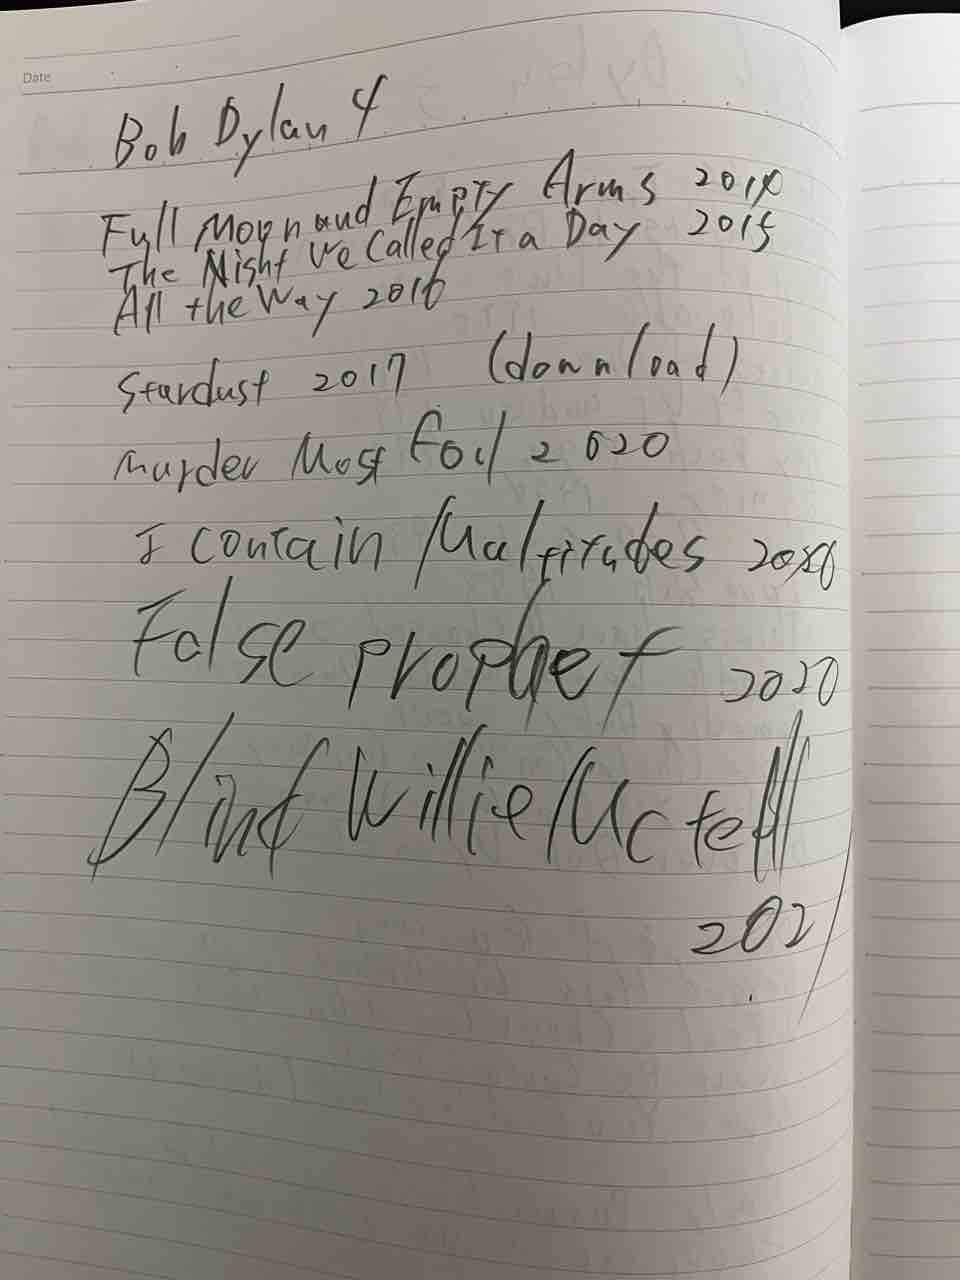 Date
Bob Dylan 4
Full Moon and Empty Arms 2014
The Night We Called It a Day 2015
All the Way 2016
Stardust 2017 (download)
Murder Most Foul 2020
I contain Multitudes 2020
False prophet 2020
Blind Willie Mctell
2021